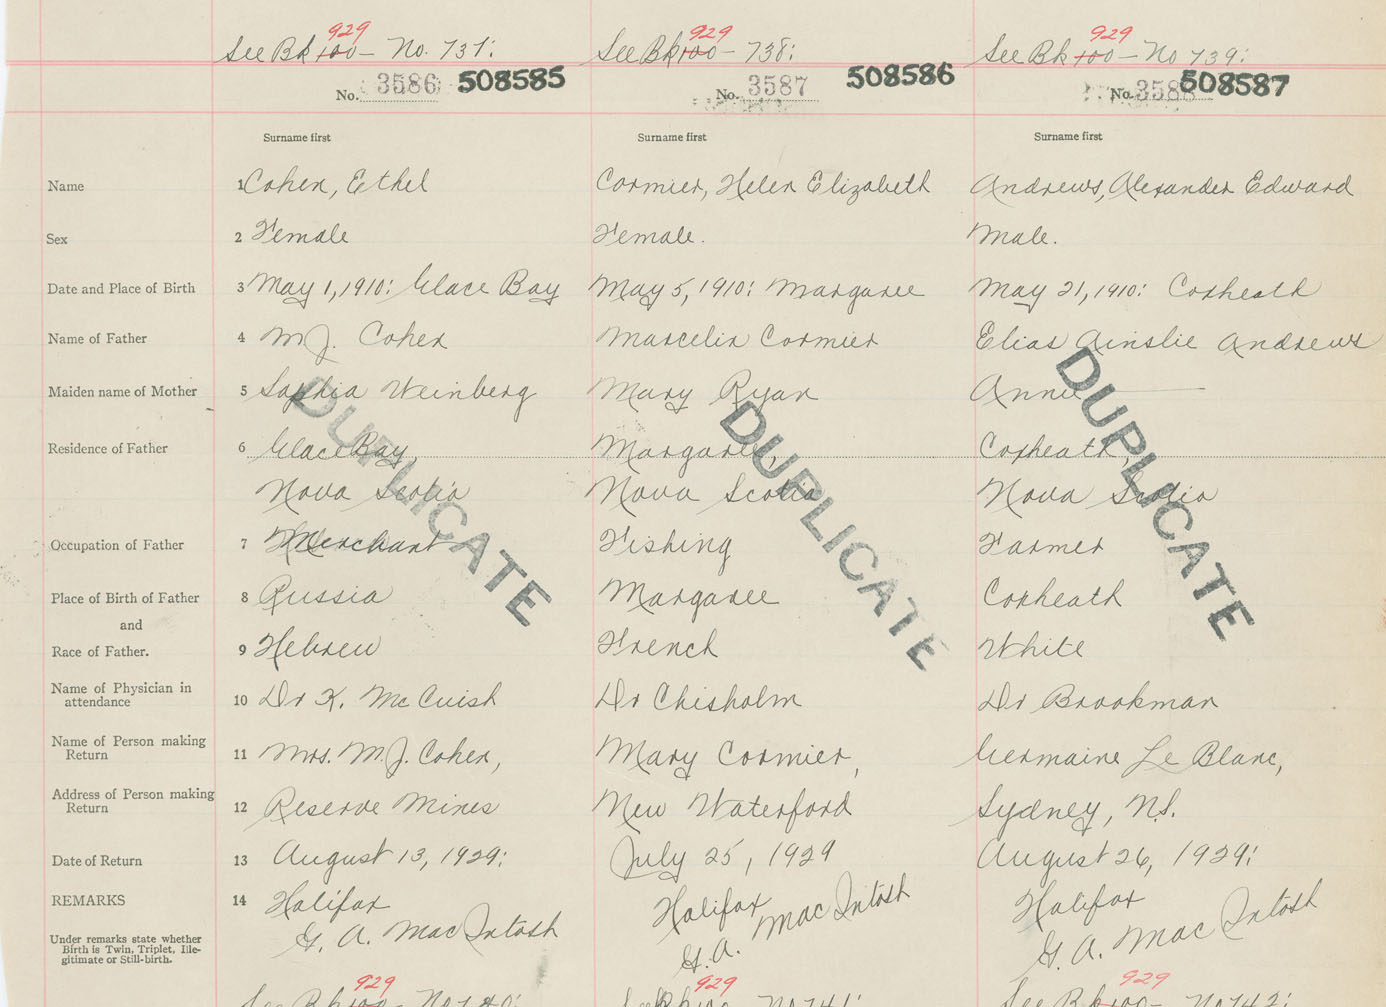 929 929 929
See Bk 100 - No. 737: See Bk 100 - 738: See Bk 100 - No 739:
No. 3586 508585 No. 3587 508586 No. 3588 508587
Surname first Surname first Surname first
Name 1 Cohen, Ethel Cormier, Helen Elizabeth Andrews, Alexander Edward
Sex 2 Female Female. Male.
Date and Place of Birth 3 May 1, 1910: Glace Bay May 5, 1910: Margaree May 21, 1910: Coxheath
Name of Father 4 M. J. Cohen Marcelin Cormier Elias Ainslie Andrews
Maiden name of Mother 5 Sophia Weinberg Mary Ryan Annie
Residence of Father 6 Glace Bay, Margaree, Coxheath,
Nova Scotia Nova Scotia Nova Scotia
DUPLICATE DUPLICATE DUPLICATE
Occupation of Father 7 Merchant Fishing Farmer
Place of Birth of Father 8 Russia Margaree Coxheath
and
Race of Father. 9 Hebrew French White
Name of Physician in
attendance 10 Dr K. McCuish Dr Chisholm Dr Brookman
Name of Person making
Return 11 Mrs. M. J. Cohen, Mary Cormier, Germaine Le Blanc,
Address of Person making
Return 12 Reserve Mines New Waterford Sydney, N.S.
Date of Return 13 August 13, 1929: July 25, 1929 August 26, 1929:
REMARKS 14 Halifax Halifax Halifax
G. A. MacIntosh G. A. MacIntosh G. A. MacIntosh
Under remarks state whether
Birth is Twin, Triplet, Ille-
gitimate or Still-birth.
929 929 929
See Bk 100 - No 740: See Bk 100 - No 741: See Bk 100 - No 742: